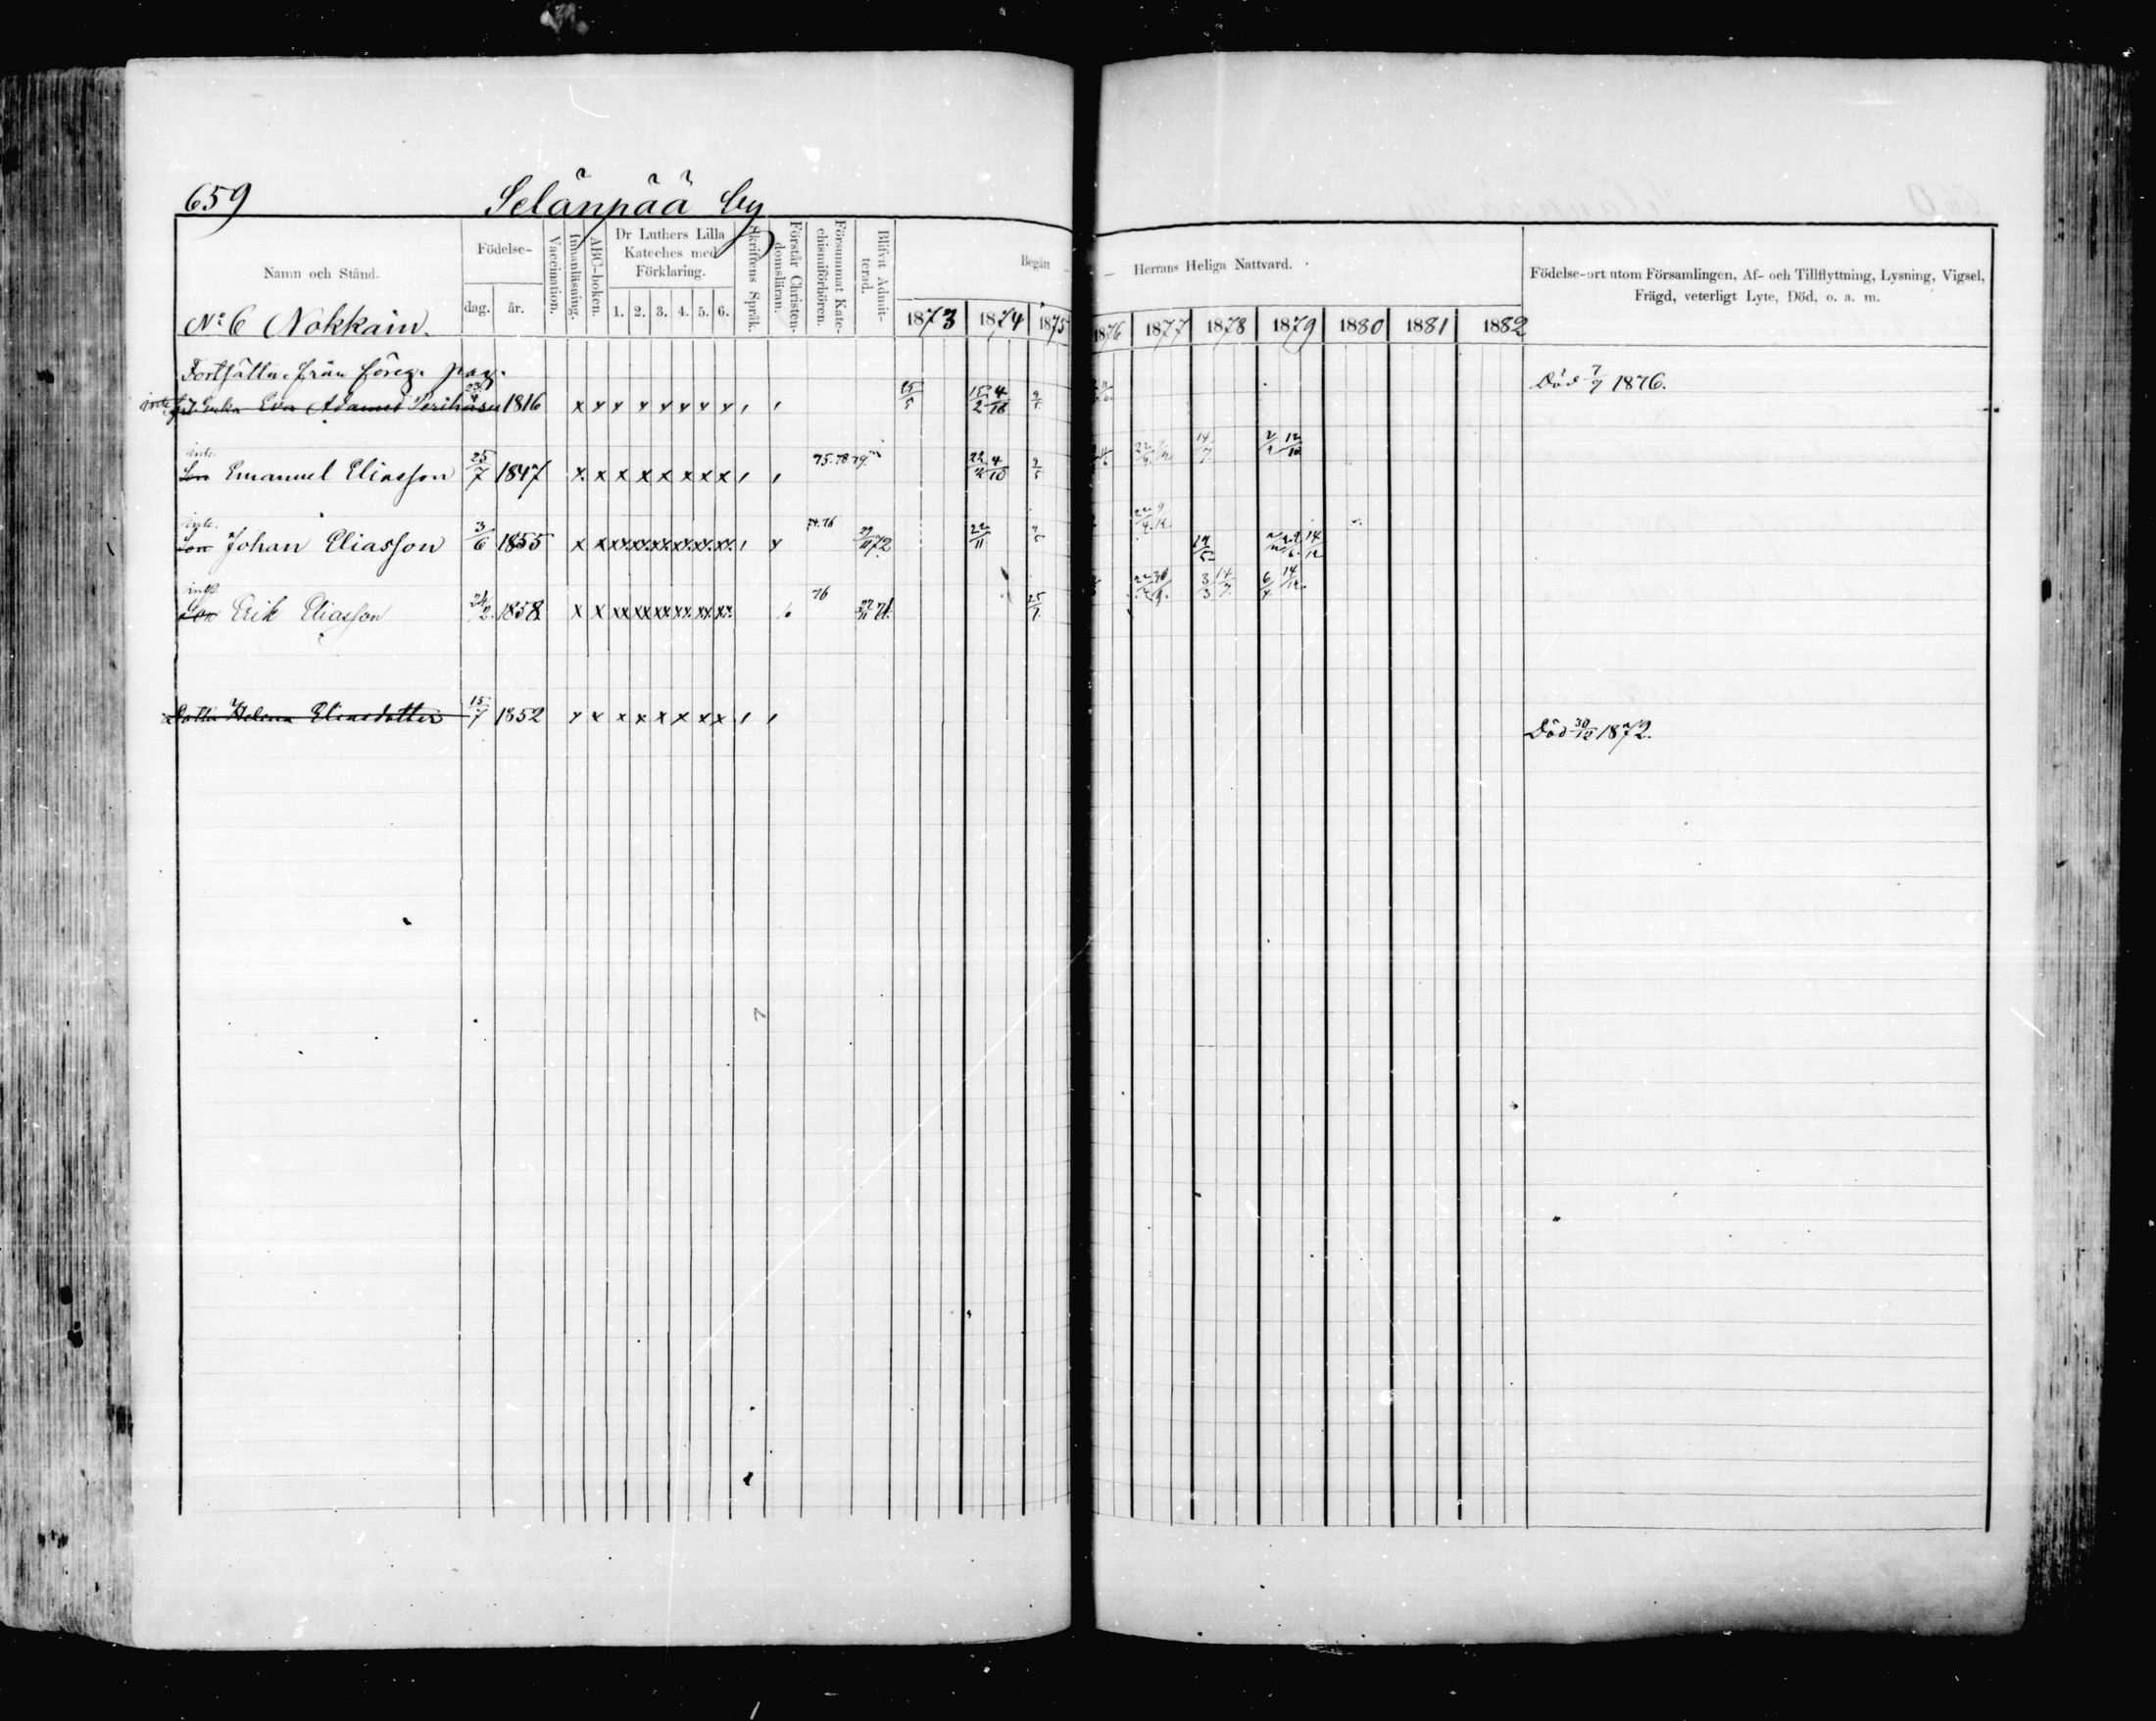 659 Selänpää by
Namn och Stånd.
Födelse-
dag. år.
Vaccination.
Innanläsning.
ABC-boken.
Dr Luthers Lilla
Kateches med
Förklaring.
1. 2. 3. 4. 5. 6.
Skriftens Språk.
Förstår Christen-
domsläran.
Försummat Kate-
chismiförhören.
Blifvit Admit-
terad.
Begått — — Herrans Heliga Nattvard.
1873 1874 1875 1876 1877 1878 1879 1880 1881 1882
Födelse-ort utom Församlingen, Af- och Tillflyttning, Lysning, Vigsel,
Frägd, veterligt Lyte, Död, o. a. m.
No 6 Nokkain.
Fortsättn. från föreg. pag.
Enka Eva Adamsd 1816 x x x x x x x x 25/5 4/10 Död 7/7 1876.
Son Emanuel Eliasson 25/7 1847 x x x x x x x x 75. 78. 79. 4/10 14/7
Son Johan Eliasson 3/6 1855 x x xx xx xx xx xx xx 74. 76 72 22/11 14/12
Son Erik Eliasson 1858 x x xx xx xx xx xx xx 76 25/7 3/3 14/7 6/4 14/12
Dotter Helena Eliasdotter 15/7 1852 x x x x x x x x Död 30/12 1872.